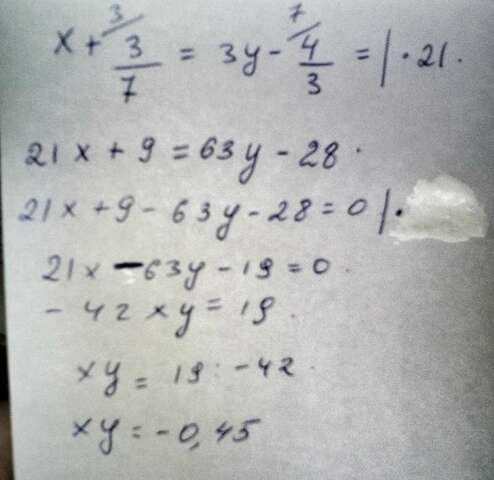 x + 3/7 = 3y - 4/3 = | · 21.
3 7
21x + 9 = 63y - 28.
21x + 9 - 63y - 28 = 0 | ·
21x - 63y - 19 = 0.
- 42xy = 19.
xy = 19 : -42.
xy = -0,45